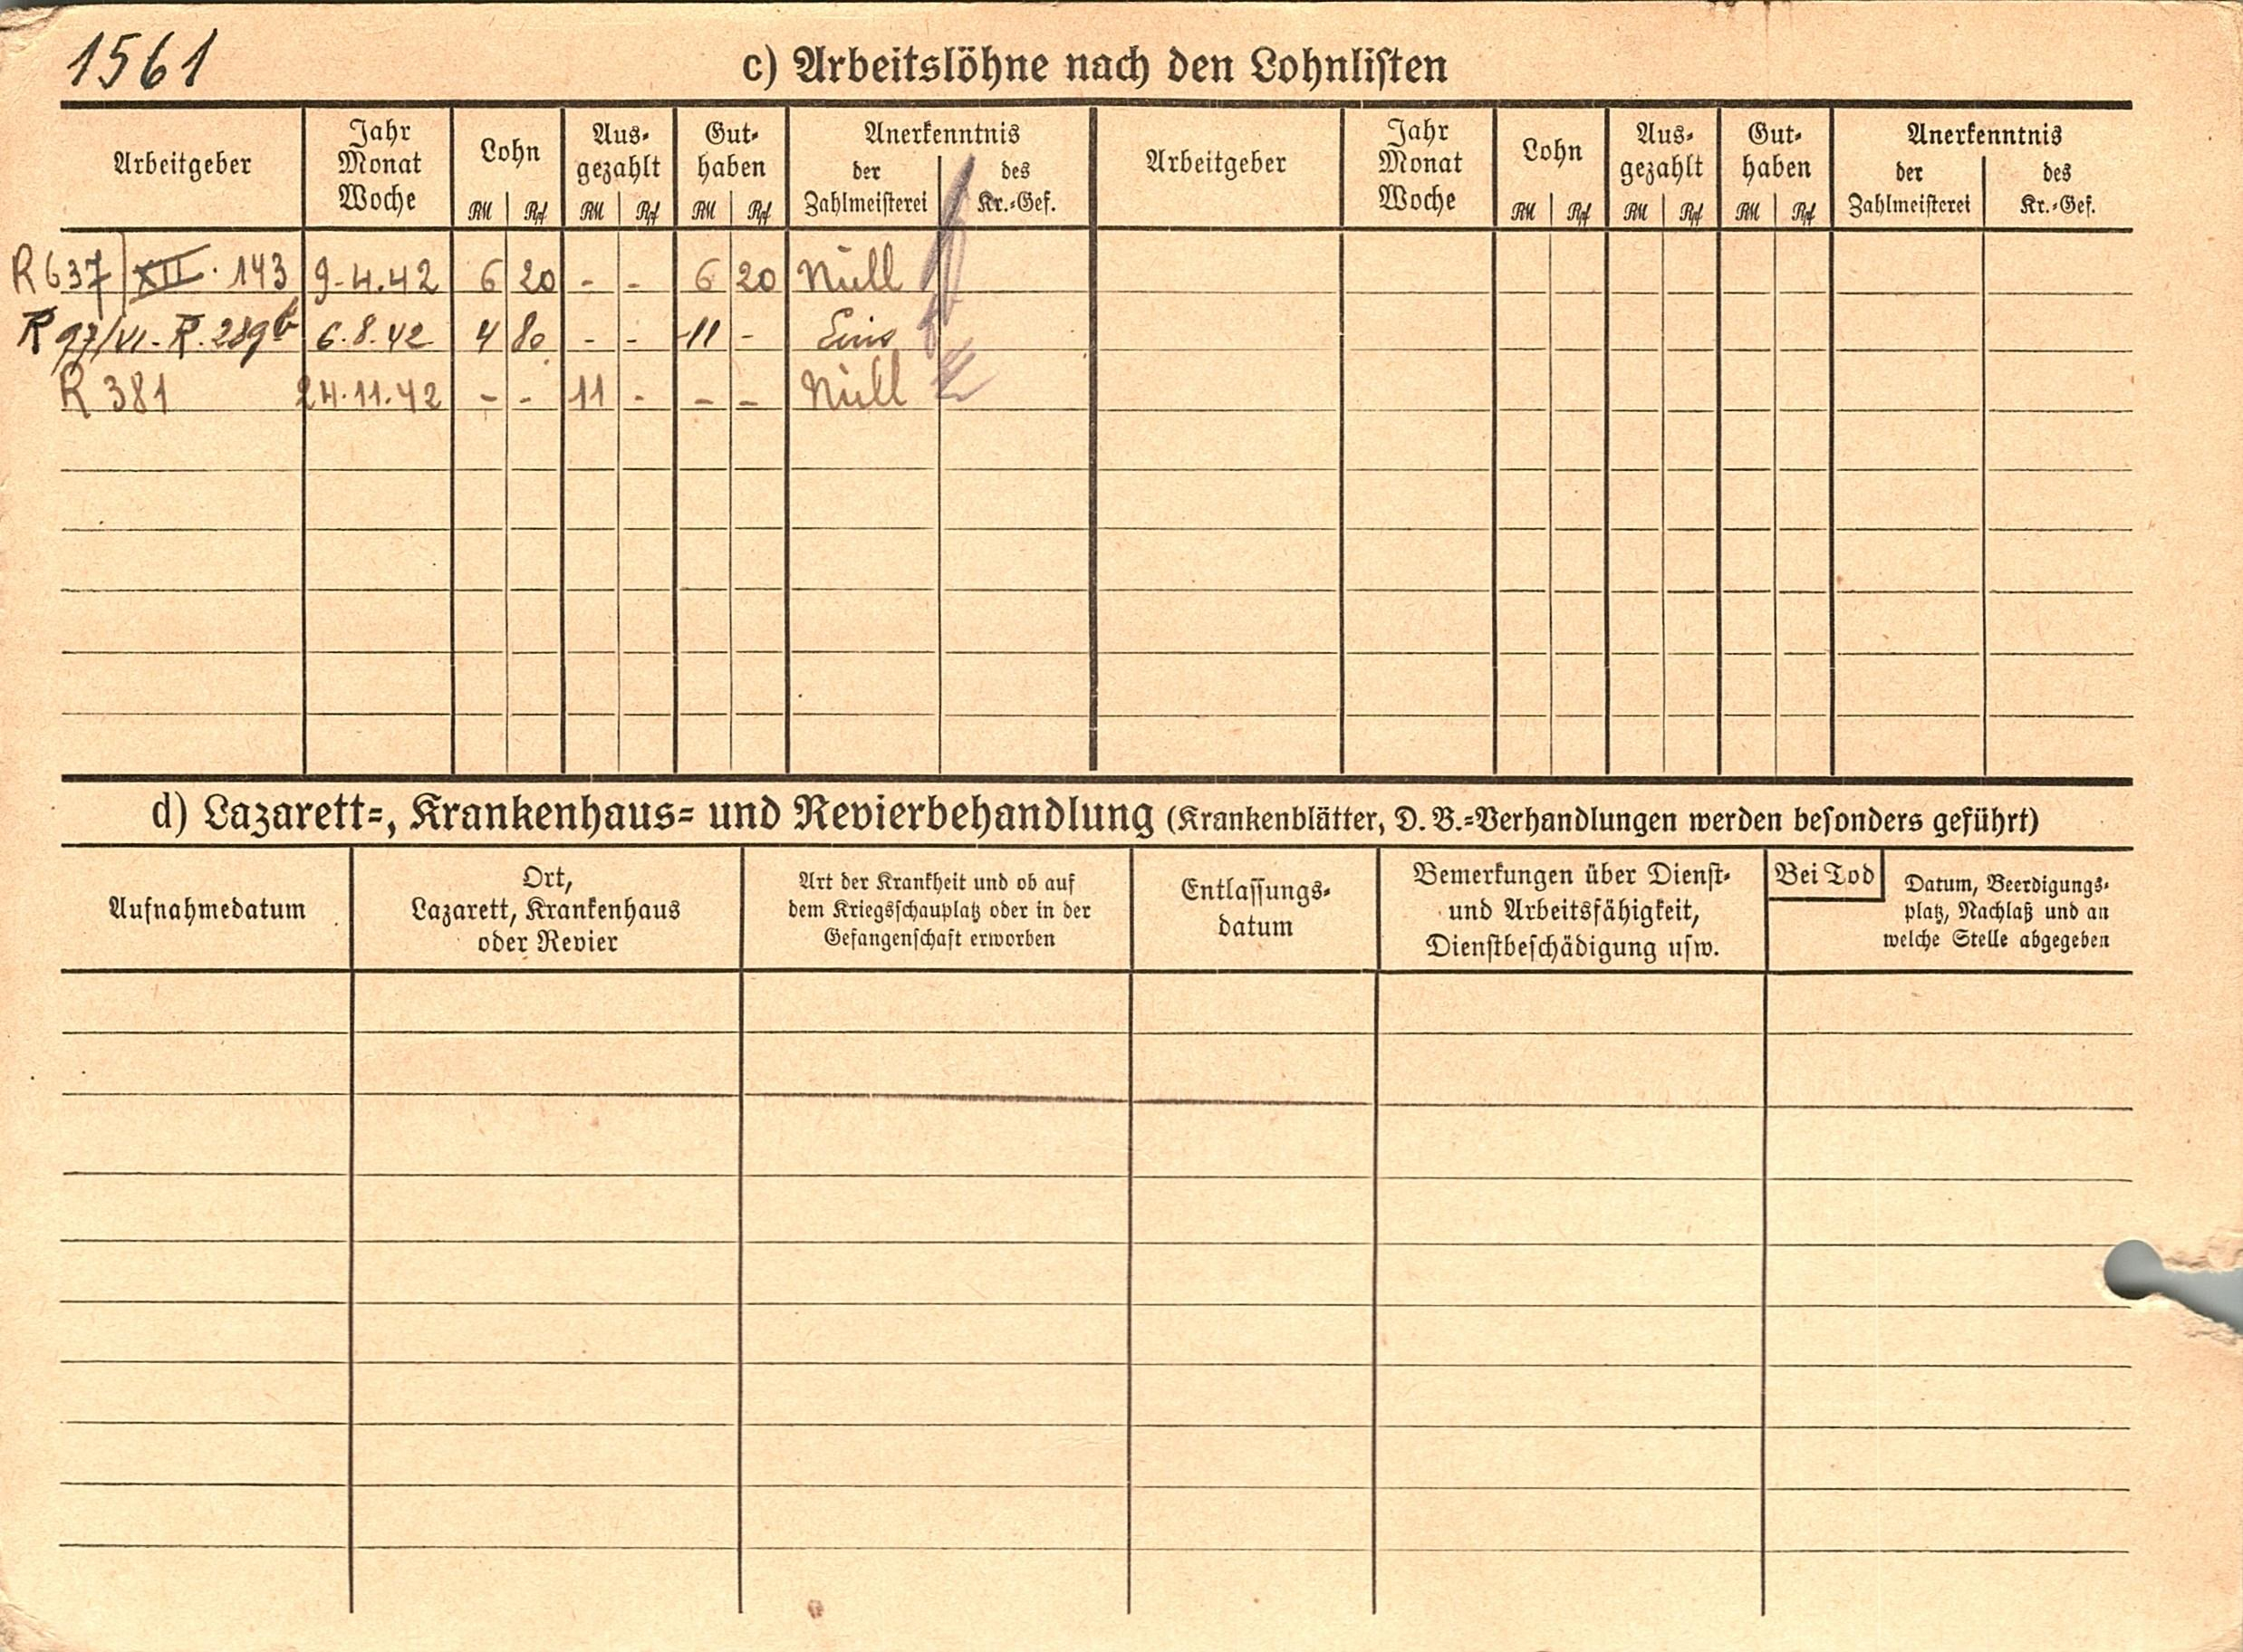 1561
c) Arbeitslöhne nach den Lohnlisten
Arbeitgeber Jahr Monat Woche Lohn RM Rpf Aus-gezahlt RM Rpf Gut-haben RM Rpf Anerkenntnis der Zahlmeisterei des Kr.-Gef. Arbeitgeber Jahr Monat Woche Lohn RM Rpf Aus-gezahlt RM Rpf Gut-haben RM Rpf Anerkenntnis der Zahlmeisterei des Kr.-Gef.
R 637 / XII. 143 9-4.42 6 20 - - 6 20 Null
R 97/VI - R. 289b 6.8.42 4 80 - - 11 - Eins
R 381 24.11.42 - - 11 - - - Null
d) Lazarett-, Krankenhaus- und Revierbehandlung (Krankenblätter, D. B.-Verhandlungen werden besonders geführt)
Aufnahmedatum
Ort,
Lazarett, Krankenhaus
oder Revier
Art der Krankheit und ob auf
dem Kriegsschauplatz oder in der
Gefangenschaft erworben
Entlassungs-
datum
Bemerkungen über Dienst-
und Arbeitsfähigkeit,
Dienstbeschädigung usw.
Bei Tod
Datum, Beerdigungs-
platz, Nachlaß und an
welche Stelle abgegeben